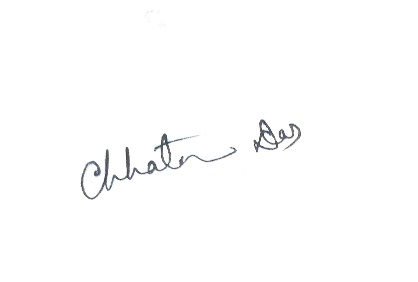 Chhatra Das